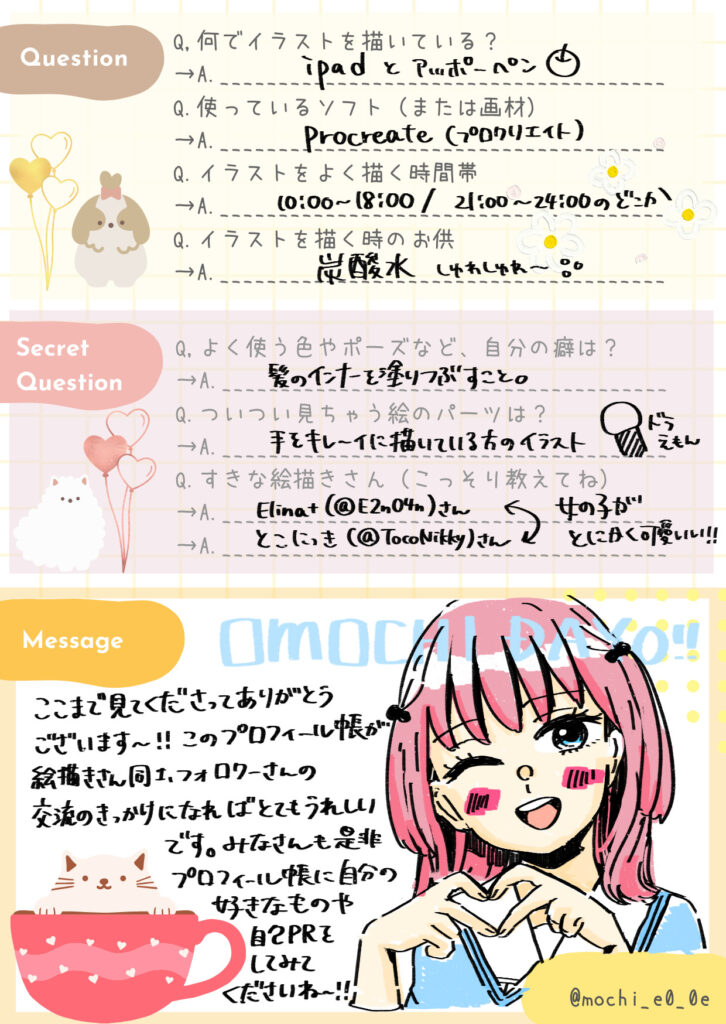 Question
Q. 何でイラストを描いている?
→A. ipad と アッポーペン
Q. 使っているソフト（または画材）
→A. Procreate (プロクリエイト)
Q. イラストをよく描く時間帯
→A. 10:00〜18:00 / 21:00〜24:00のどこか
Q. イラストを描く時のお供
→A. 炭酸水 しゅわしゅわ〜
Secret
Question
Q. よく使う色やポーズなど、自分の癖は?
→A. 髪のインナーを塗りつぶすこと。
Q. ついつい見ちゃう絵のパーツは?
→A. 手をキレーイに描いている方のイラスト
ドラ
えもん
Q. すきな絵描きさん（こっそり教えてね）
→A. Elinat (@E2n04n)さん
→A. とこにっき (@TocoNikky)さん
女の子が
とにかく可愛いい!!
Message
OMOCHI DAYO!!
ここまで見てくださってありがとう
ございます〜!! このプロフィール帳が
絵描きさん同士、フォロワーさんの
交流のきっかけになればとてもうれしい
です。みなさんも是非
プロフィール帳に自分の
好きなものや
自己PRを
してみて
くださいね〜!!
@mochi_e0_0e